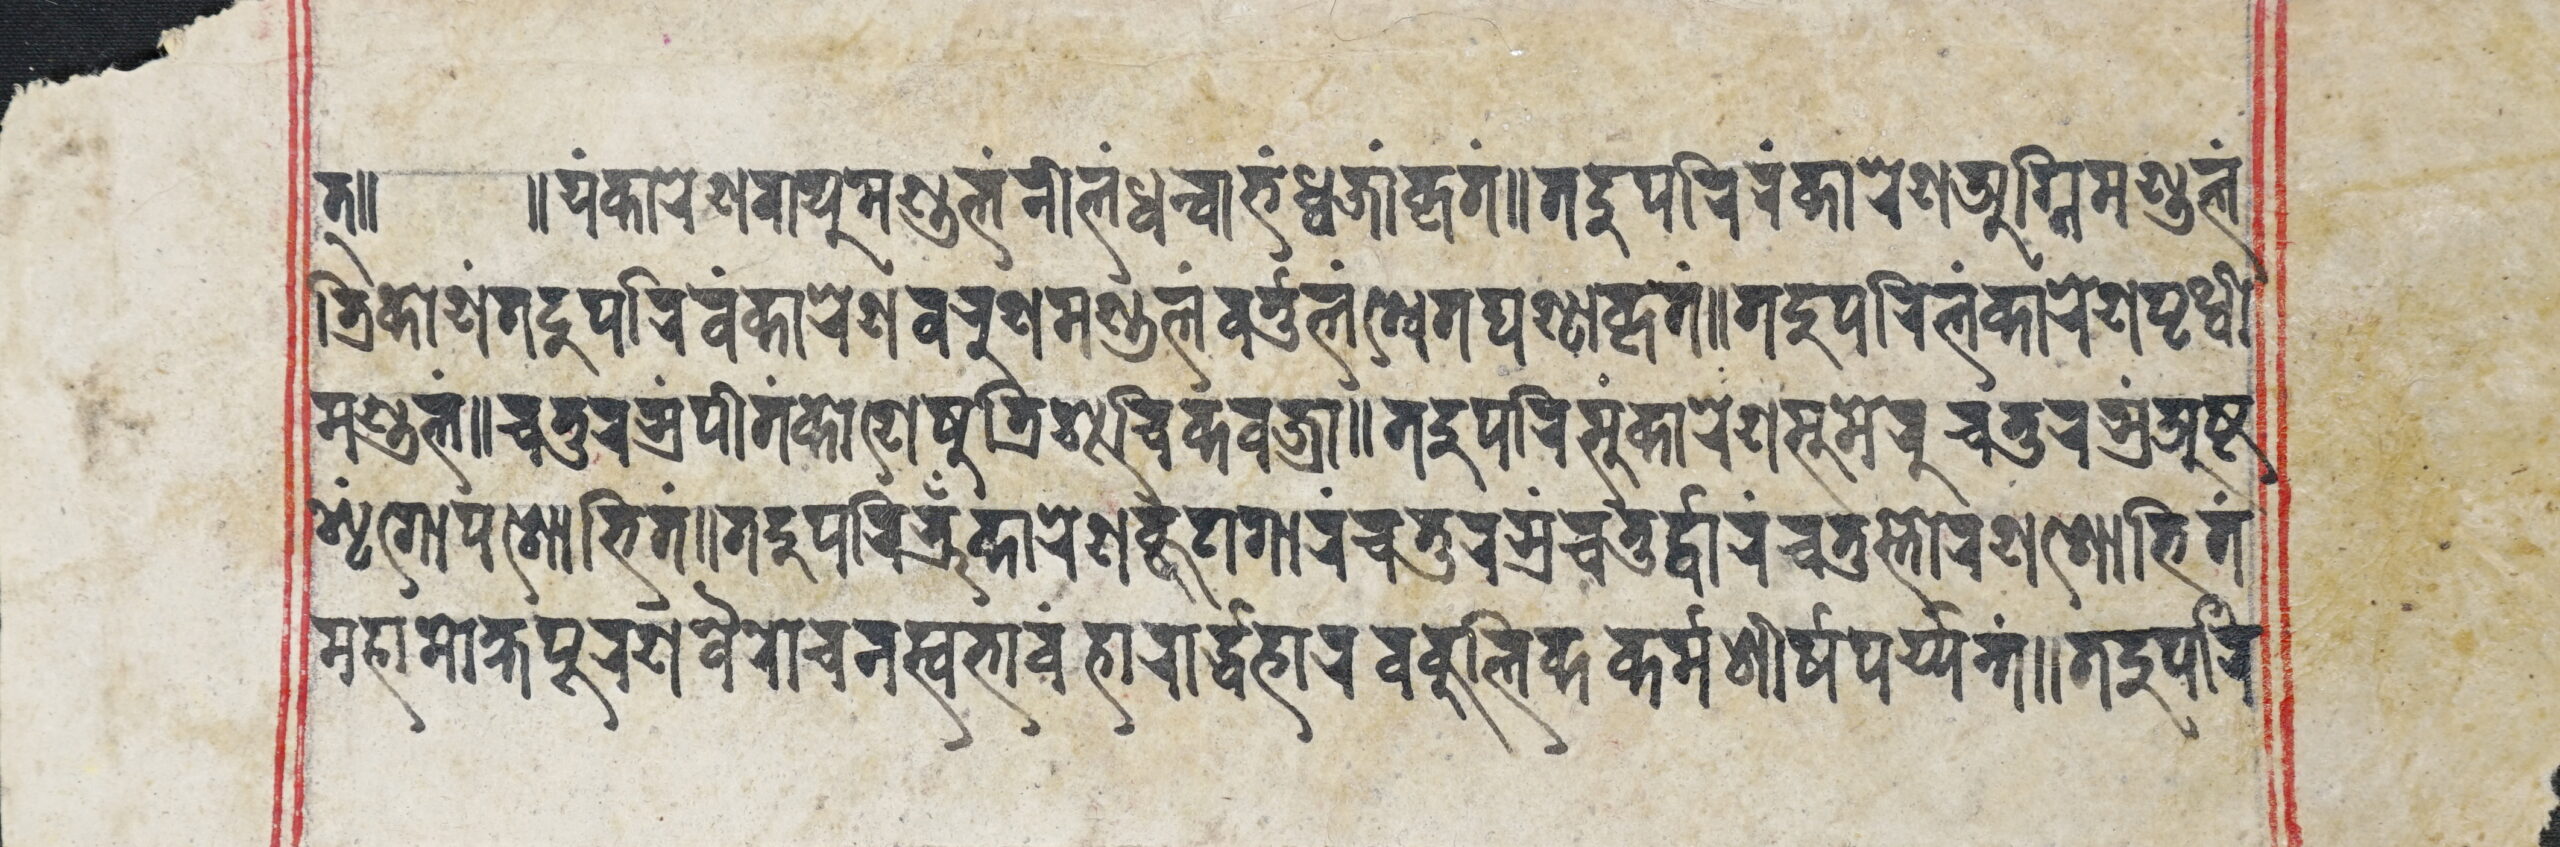 त्॥ ॥यंकारेणवायुमण्डलंनीलंधन्वाभंध्वजांकृतं॥तदुपरिरंकारेणअग्निमण्डलं
त्रिकोणंतदुपरिवंकारेणवरुणमण्डलंवर्त्तुलंश्वेतघण्टाकृतं॥तदुपरिलंकारेणपृथ्वी
मण्डलं॥चतुरस्रंपीतंकोणेषुत्रिशूचिकंवज्रा॥तदुपरिसुंकारेणसुमेरुचतुरस्रंअष्ट
शृंगोपशोभितं॥तदुपरिभ्रूँकारेणकूटागारंचतुरस्रंचतुर्द्वारंचतुस्तोरणशोभितं
महामोक्षपूरणंवैरोचनस्वभावंहारार्द्धहारवकुलिकक्रर्मशीर्षपर्य्यन्तं॥तदुपरि